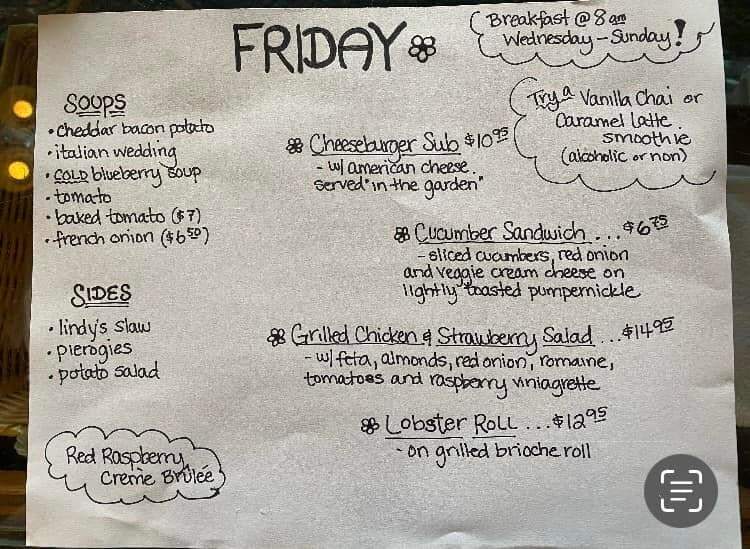 FRIDAY
Breakfast @ 8 am
Wednesday - Sunday!
SOUPS
• cheddar bacon potato
• italian wedding
• COLD blueberry soup
• tomato
• baked tomato ($7)
• french onion ($6 50)
SIDES
• lindy's slaw
• pierogies
• potato salad
Red Raspberry
Creme Brûleé
Try a Vanilla Chai or
Caramel latte
smoothie
(alcoholic or non)
Cheeseburger Sub $10 95
- w/ american cheese.
served "in the garden"
Cucumber Sandwich ... $6 75
- sliced cucumbers, red onion
and veggie cream cheese on
lightly toasted pumpernickle
Grilled Chicken & Strawberry Salad ... $14 95
- w/ feta, almonds, red onion, romaine,
tomatoes and raspberry viniagrette
Lobster Roll ... $12 95
- on grilled brioche roll